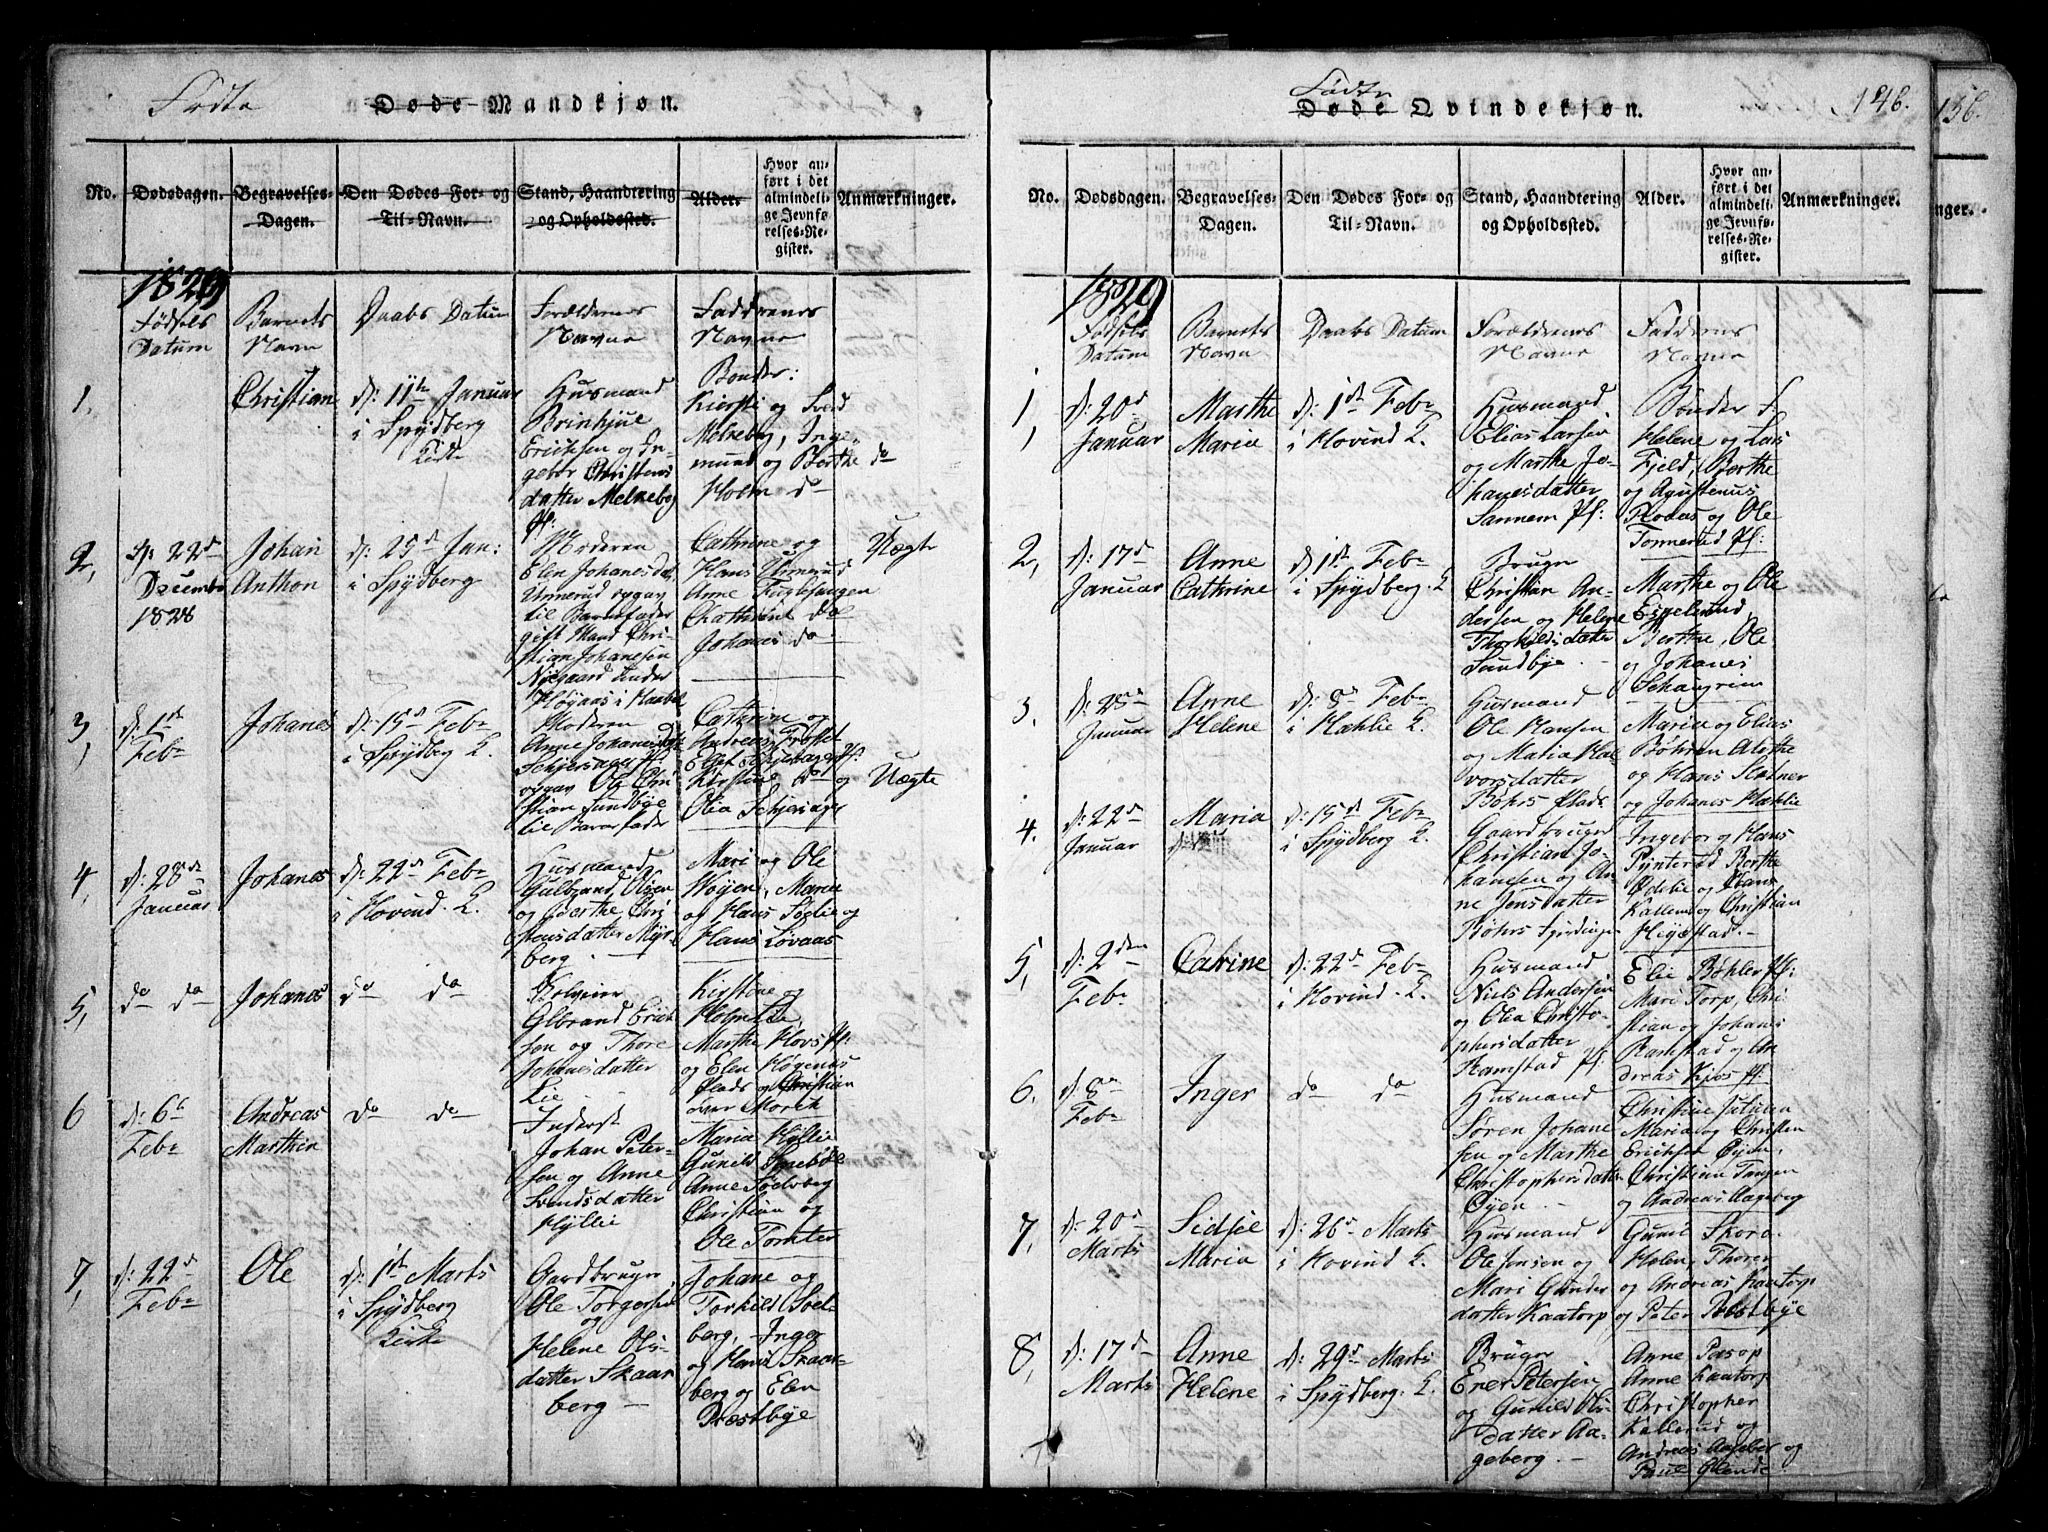 Fødte Døde Mandkjøn.
No. Dødsdagen. Begravelses-Dagen. Den Dødes For- og Til-Navn. Stand, Haandtering og Opholdssted. Alder. Hvor anført i det almindelige Jevnførelses-Register. Anmærkninger.
1829
Fødsels Datum
Barnets Navn
Daabs Datum
Forældrenes Navne
Faddrenes Navne
1,
Christian
d: 11te Januar
i Spydberg
Kirke
Husmand
Brinhjul
Ericksen og In-
gebor Christens
datter Melkebog
Pf:
Bonder:
Kiersti og
Melkebog, Inge-
mund og Berthe do
Holm do
2,
d: 22d
Decembr
1828
Johan
Anthon
d: 25d Jan:
i Spydberg
Moderen
Elen Johanesdat,
Unnerud opgav
til Barnefader
gift Mand Chri-
stian Johanesen
Nygaard under
Høyaas i Haabel
Cathrine og
Hans Unnerud
Anne Fuglehaugen
Chathrine do
Johanes do
Uægte
3,
d: 1ste
Febr
Johanes
d: 15d Febr
i Spydberg K.
Moderen
Anne Johanesdat
Schjersager Pf:
opgav Ole Chri-
stian Sundbye
til Barnefader
Cathrine og
Andreas
Kirstine do og
Olia Schjersager
Uægte
4,
d: 28de
Januar
Johanes
d: 22d Febr
i Hovind K.
Husmand
Gulbrand Olsen
og Berthe Chri-
stensdatter Myr-
berg.
Mari og Ole
Woyen, Maria
og Hans Soglie og
Hans Løvaas
5,
do do
Johanes
do do
Glbrand Erick
sen og Thore
Johanesdatter
Lie
Kirstine og
Marthe Hovs Pf:
og Elen Høgenæs
Plads og Christian
over Morteh
6
d: 6te
Febr
Andreas
Marthin
do do
Inderst
Johan Peter-
sen og Anne
Svendsdatter
Hyllie
Maria Hyllie
Gunild Synebøl
Anne Soelberg
Christian og
Ole Tomter
7,
d: 22d
Febr
Ole
d: 1ste Marts
i Spydberg
Kirke
Gardbruger
Ole Torgersen
og
Helene Ols-
datter Skaar
berg –
Johane og
Torkild Soel-
berg, Inger
og Hans Skaar-
berg og Elen
Præstbye
Fødte
Døde Qvindekjøn.
146.
156.
No. Dødsdagen. Begravelses-Dagen. Den Dødes For- og Til-Navn. Stand, Haandtering og Opholdssted. Alder. Hvor anført i det almindelige Jevnførelses-Register. Anmærkninger.
nger.
1829
Fødsels Datum
Barnets Navn
Daabs Datum
Forældrenes Navne
Faddernes Navne
1,
d: 20d
Januar
Marthe
Maria
d: 1ste Febr
i Hovind K.
Husmand
Elias Larsen
og Marthe Jo-
hanesdatter
Sannem Pf:
Bønder f.
Helene og Lars
Fjeld, Berthe
og Agustenus
og Ole
Tommerud Pf:
2,
d: 17d
Januar
Anne
Cathrine
d: 1ste Febr
i Spydberg. K
Bruger
Christian An-
dersen og Helene
Thorkildsdatter
Sundbye –
Marthe og Ole
Espelund,
Berthe, Ole
og Johanes
3.
d: 28de
Januar
Anne
Helene
d: 8de Febr
i Hæhlie K.
Husmand
Ole Hansen
og Maria Hal-
vorsdatter
Bøhrs Plads
Maria og Elias
Bøhren
og Hans
og Johanes Hæhlie
4.
d: 22de
Januar
Maria
d: 15d Febr
i Spydberg K.
Gaardbruger
Christian Jo-
hansen og An-
ne Jensdatter
Bøhrs
Ingebor og Hans
Pynterud Berthe
og Christian
5,
d: 2den
Febr
Carine
d: 22d Febr
i Hovind. K.
Husmand
Niels Andersen
og Olia Christo-
phersdatter
Ramstad Pf:
Elie Bøhler Pf:
Mari Torp, Chri-
stian og Johanes
Ramstad og An-
dreas Kjos Pf
6.
d: 8de
Febr
Inger
do do
Husmand
Søren Johane
sen og Marthe
Christophersdatter
Øyen. –
Christine
Maria og Christen
Erichsen Øyen,
Christian Tangen
og Andreas Aageberg
7,
d: 20d
Marts
Sidsie
Maria
d: 26d Marts
i Hovind K.
Husmand
Ole Jensen og
Mari Gunder
datter Kaatorp
Gunil Skore
Helene Thoren
og Andreas Kaatorp
og Peter Præstbye
8,
d: 17d
Marts
Anne
Helene
d: 29d Marts
i Spydberg. K.
Bruger
Ener Petersen
og Gunild Ols-
datter Aa-
geberg. –
Anne Pasop
Anne Kaatorp
Christopher
Kallerud og
Andreas Aageber og
Paul Glende